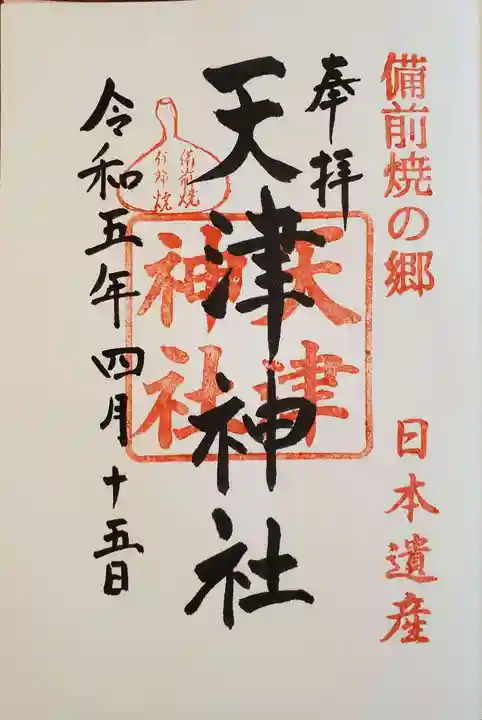 備前焼の郷
日本遺産
奉拝
天津神社
天津
神社
備前焼
伊部焼
令和五年四月十五日